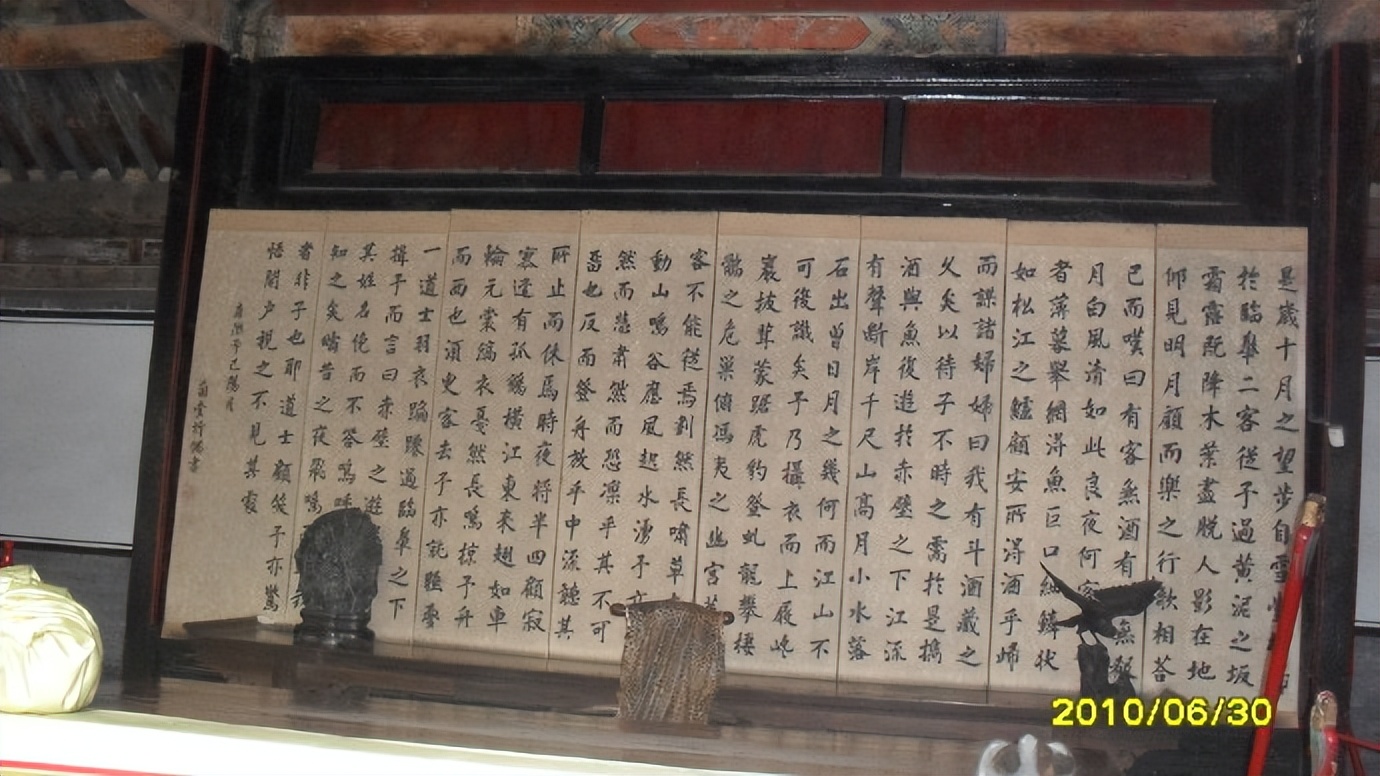 是歲十月之望步自雪
於臨皋二客從予過黃泥之坂
霜露既降木葉盡脫人影在地
仰見明月顧而樂之行歌相荅
已而嘆曰有客無酒有無殽
月白風清如此良夜何客
者薄暮舉網得魚巨口細鱗狀
如松江之鱸顧安所得酒乎歸
而謀諸婦婦曰我有斗酒藏之
久矣以待子不時之需於是攜
酒與魚復遊於赤壁之下江流
有聲斷岸千尺山高月小水落
石出曾日月之幾何而江山不
可復識矣予乃攝衣而上履巉
巖披茸蒙踞虎豹登虬龍攀棲
鶻之危巢俯馮夷之幽宮蓋
客不能從焉劃然長嘯草
動山鳴谷應風起水湧予亦
然而悲肅然而恐凜乎其不可
留也反而登舟放乎中流聽其
所止而休焉時夜將半四顧寂
寥適有孤鶴橫江東來翅如車
輪元裳縞衣戛然長鳴掠予舟
而西也須臾客去予亦就睡夢
一道士羽衣蹁躚過臨皋之下
揖予而言曰赤壁之遊
其姓名俛而不答嗚呼
知之矣疇昔之夜飛鳴
者非子也耶道士顧笑予亦驚
悟開户視之不見其處
2010/06/30